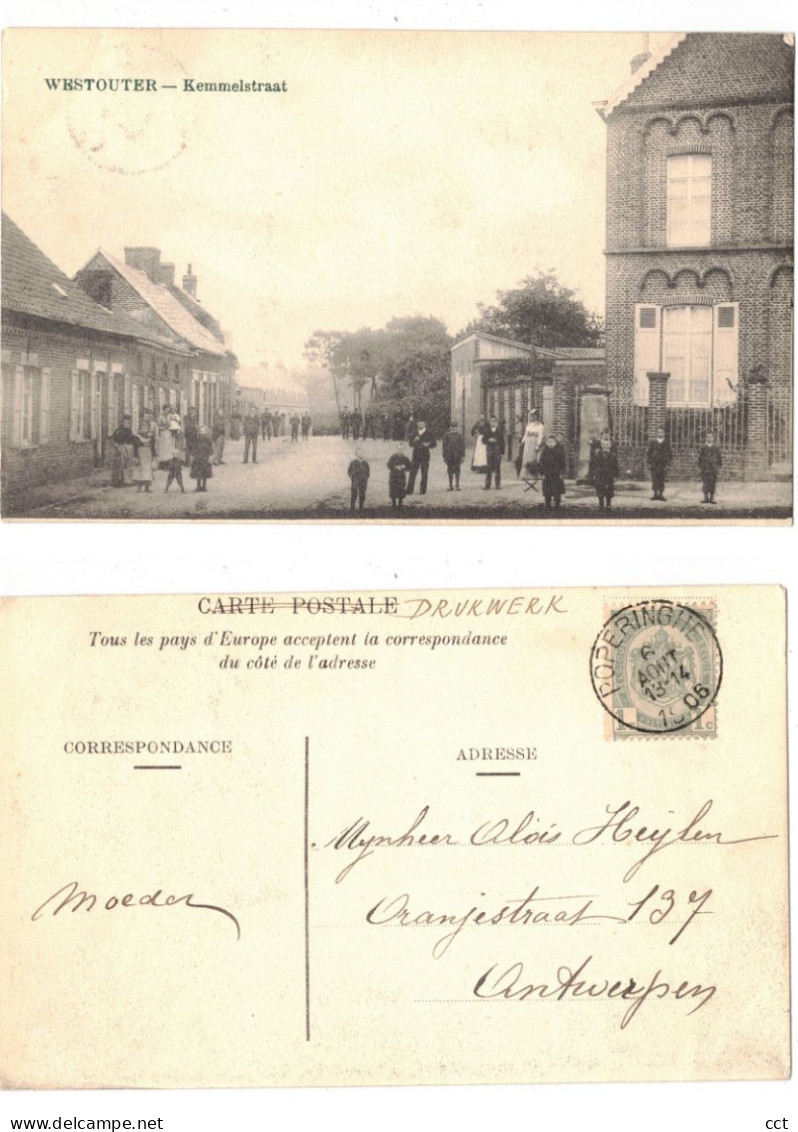 WESTOUTER — Kemmelstraat
CARTE POSTALE DRUKWERK
Tous les pays d'Europe acceptent la correspondance
du côté de l'adresse
POPERINGHE
6
AOUT
13-14
1906
1 c 1 c
CORRESPONDANCE
ADRESSE
Mynheer Aloïs Heylen
Moeder
Oranjestraat 137
Antwerpen
website: Delcampe.net
cct